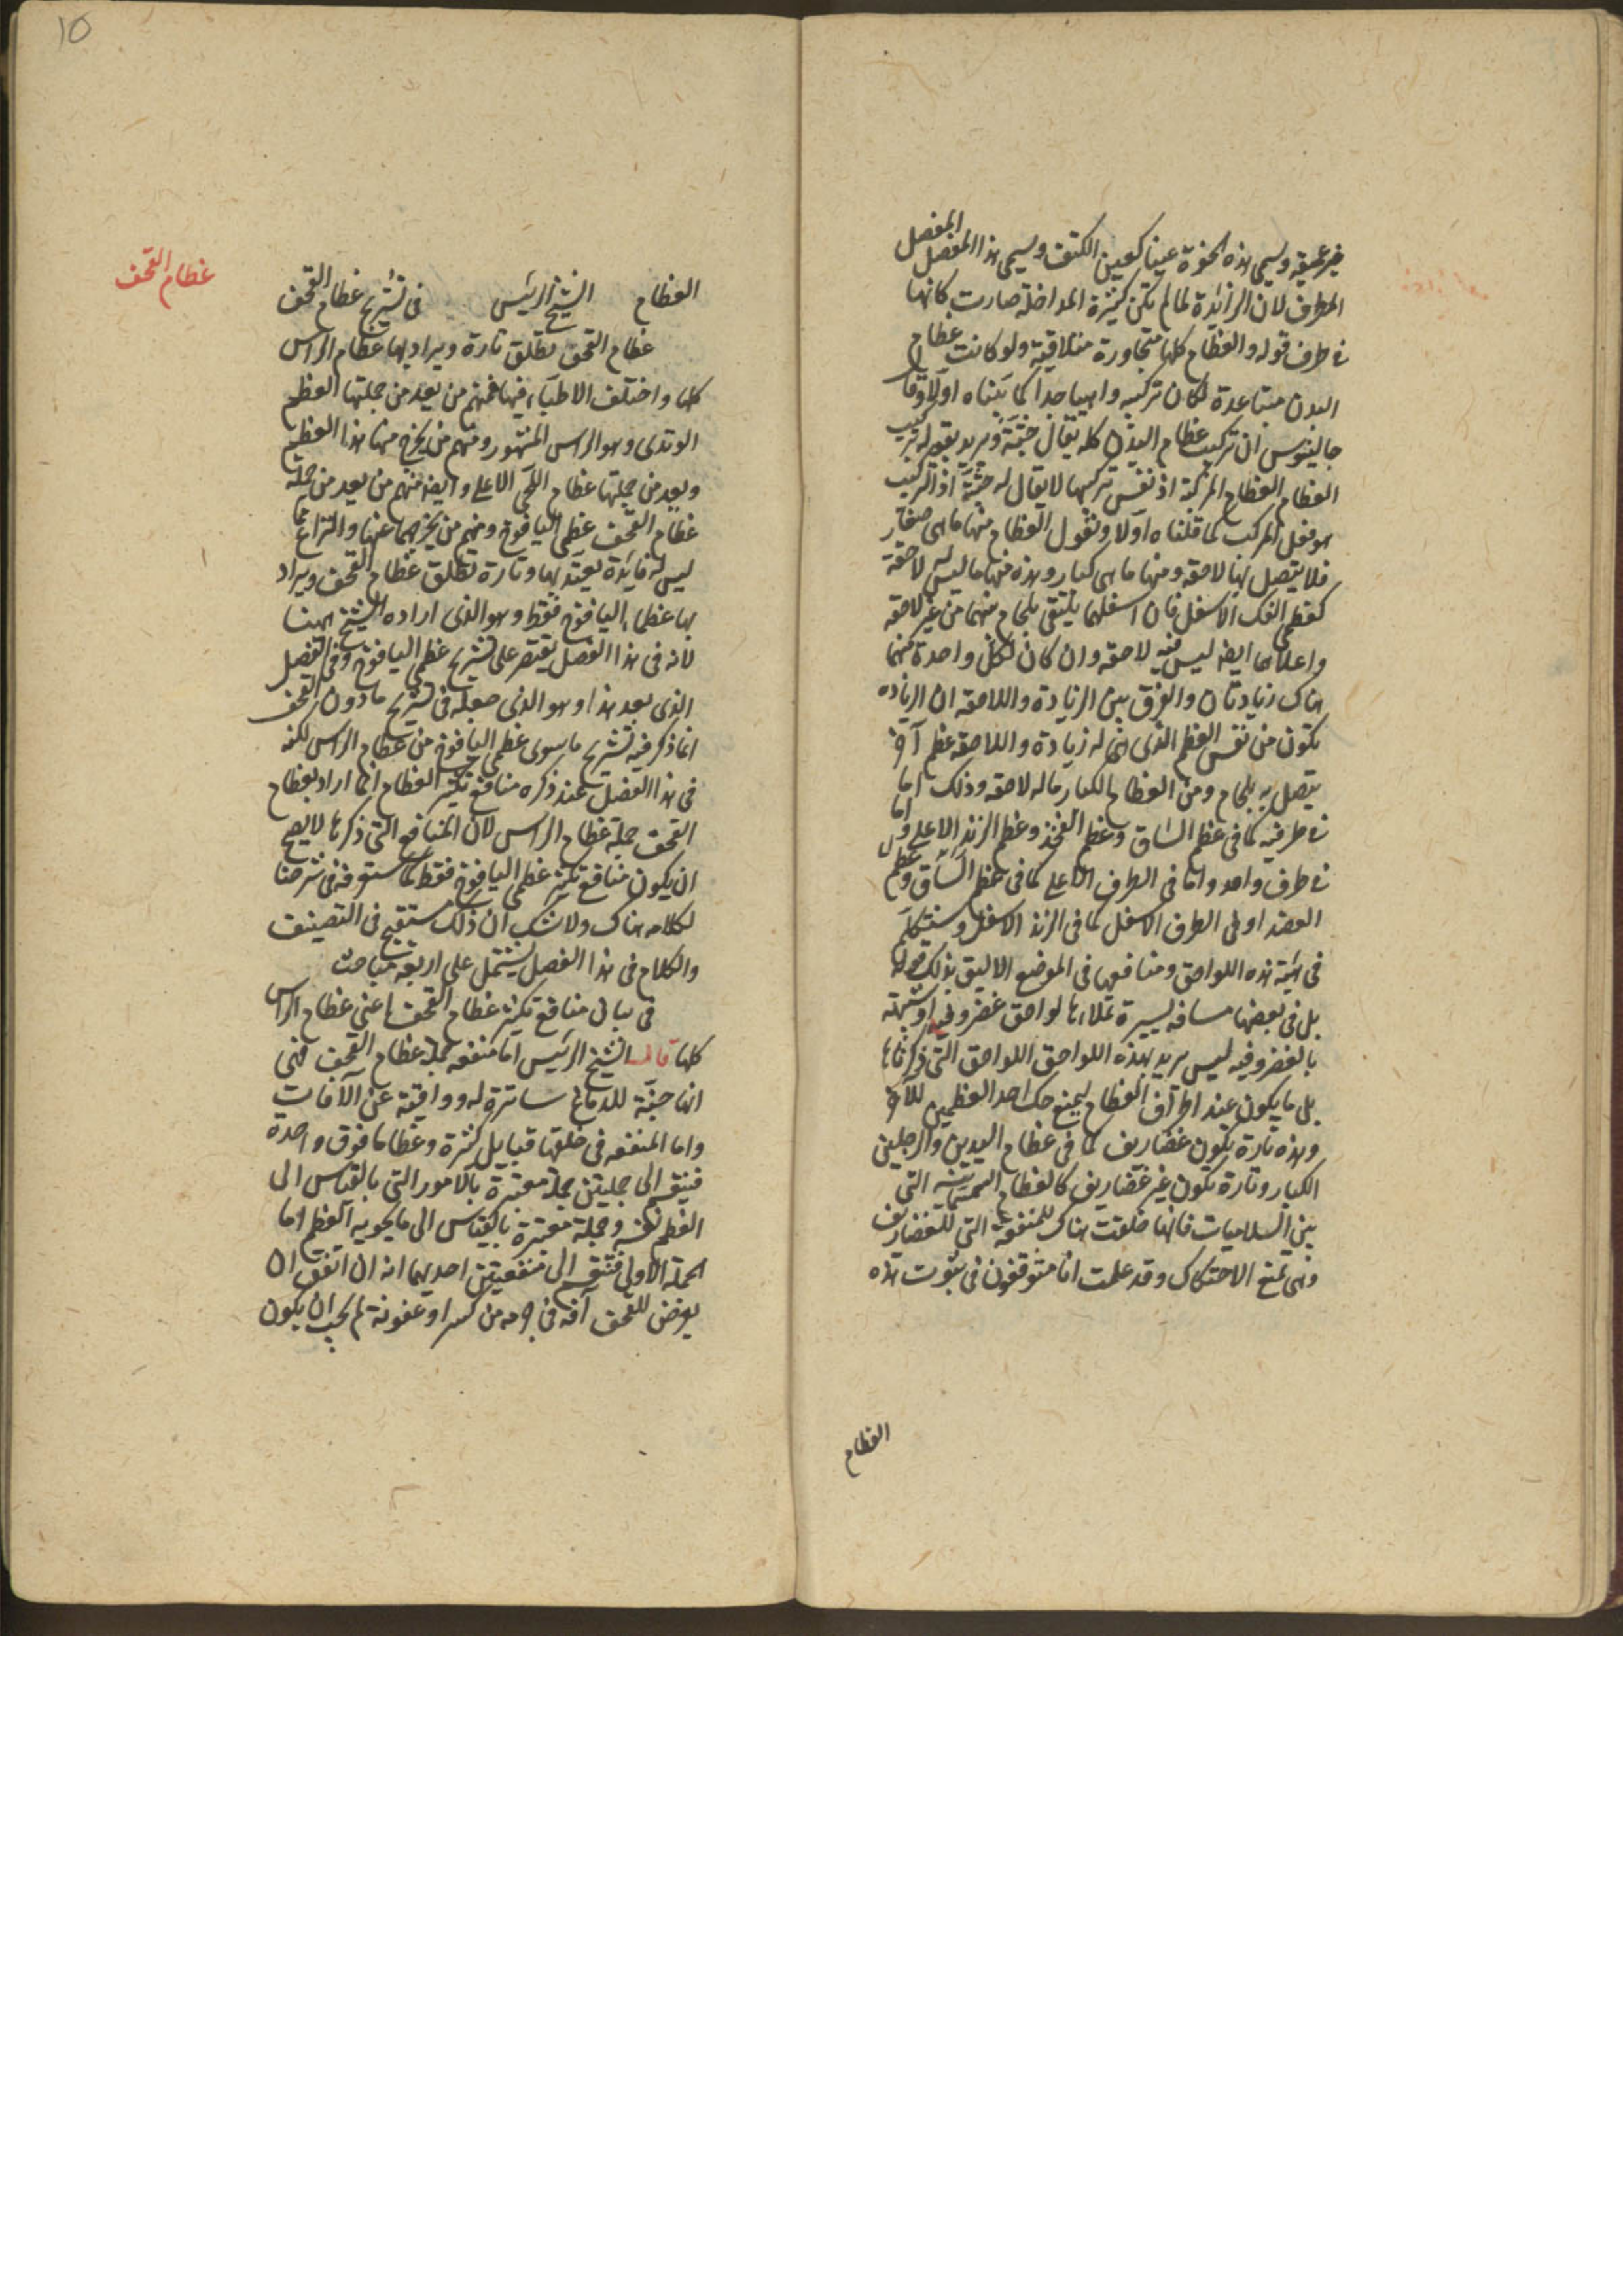 غير عميقة ويسمى هذه الحفرة عينا كعين الكتف ويسمى هذا المفصل المفصل
المطرف لان الزائدة لما لم تكن كثيرة المداخلة صارت كانها
فى طرف قوله والعظام كلها متجاورة متلاقية ولو كانت عظام
البدن متباعدة لكان تركيبه واهيا جدا كما بيناه اولا وقال
جالينوس ان تركيب عظام البدن كله يقال جثة ويريد بقوله تركيب
العظام العظام المركبة اذ نفس تركيبها لا يقال له جثة اذ التركيب
هو فعل المركب كما قلناه اولا ونقول العظام منها ما هى صغار
فلا يتصل بها لاحقه ومنها ما هى كبار وهذه منها ما ليس له لاحقة
كعظمى الفك الاسفل فان اسفلهما يلتقى بلحام منهما من غير لاحقه
واعلاهما ايضا ليس فيه لاحقه وان كان لكل واحدة منهما
هناك زيادتان والفرق بين الزيادة واللاحقه ان الزياده
تكون من نفس العظم الذى هى له زيادة واللاحقه عظم آخر
يتصل به بلحام ومن العظام الكبار ما له لاحقه وذلك اما
فى طرفيه كما فى عظم الساق وعظم الفخذ وعظم الزند الاعلى واما
فى طرف واحد واما فى الطرف الاعلى كما فى عظم الساق وعظم
العضد او فى الطرف الاسفل كما فى الزند الاسفل وسنتكلم
فى هيئة هذه اللواحق ومنافعها فى الموضع الاليق بذلك قوله
بل فى بعضها مسافه يسيرة تملاءها لواحق غضروفيه او شبيهة
بالغضروفيه ليس يريد بهذه اللواحق اللواحق التى ذكرناها
بل ما يكون عند اطراف العظام ليمنع حك احد العظمين للآخر
وهذه تارة يكون غضاريف كما فى عظام اليدين والرجلين
الكبار وتارة تكون غير غضاريف كالعظام السمسمانيه التى
بين السلاميات فانها خلقت هناك للمنفعة التى للغضاريف
وهى تمنع الاحتكاك وقد علمت انا متوقفون فى ثبوت هذه
العظام
عظام القحف
العظام الشيخ الرئيس فى تشريح عظام القحف
عظام القحف تطلق تارة ويراد بها عظام الراس
كلها واختلف الاطباء فيها فمنهم من يعد من جملتها العظم
الوتدى وهو الراس المشهور ومنهم من يخرج منها هذا العظم
ويعد من جملتها عظام اللحى الاعلى وايضا منهم من يعد من جملة
عظام القحف عظمى اليافوخ ومنهم من يخرجهما عنها والنزاع مما
ليس له فايدة يعتد بها وتارة تطلق عظام القحف ويراد
بها عظما اليافوخ فقط وهو الذى اراده الشيخ ههنا
لانه فى هذا الفصل يقتصر على تشريح عظمى اليافوخ وفى الفصل
الذى بعد هذا وهو الذى جعله فى تشريح ما دون القحف
انما ذكر فيه تشريح ما سوى عظمى اليافوخ من عظام الراس لكنه
فى هذا الفصل عند ذكره منافع تكثير العظام انما اراد بعظام
القحف جملة عظام الراس لان المنافع التى ذكرها لا يصح
ان يكون منافع تكثير عظمى اليافوخ فقط كما ستعرفه فى شرحنا
لكلامه هناك ولا شك ان ذلك مستقبح فى التصنيف
والكلام فى هذا الفصل يشتمل على اربعة مباحث
فى بيان منافع تكثير عظام القحف اعنى عظام الراس
كلها قال الشيخ الرئيس اما منفعه جملة عظام القحف فهى
انها جنة للدماغ ساترة له وواقية عن الآفات
واما المنفعه فى خلقها قبايل كثيرة وعظاما فوق واحدة
فينقسم الى جملتين جملة معتبرة بالامور التى بالقياس الى
العظم نفسه وجملة معتبرة بالقياس الى ما يحويه العظم اما
الجملة الاولى فتنقسم الى منفعتين احديهما انه ان اتفق ان
يعرض للقحف آفه فى جزء من كسر او عفونة لم يجب ان يكون